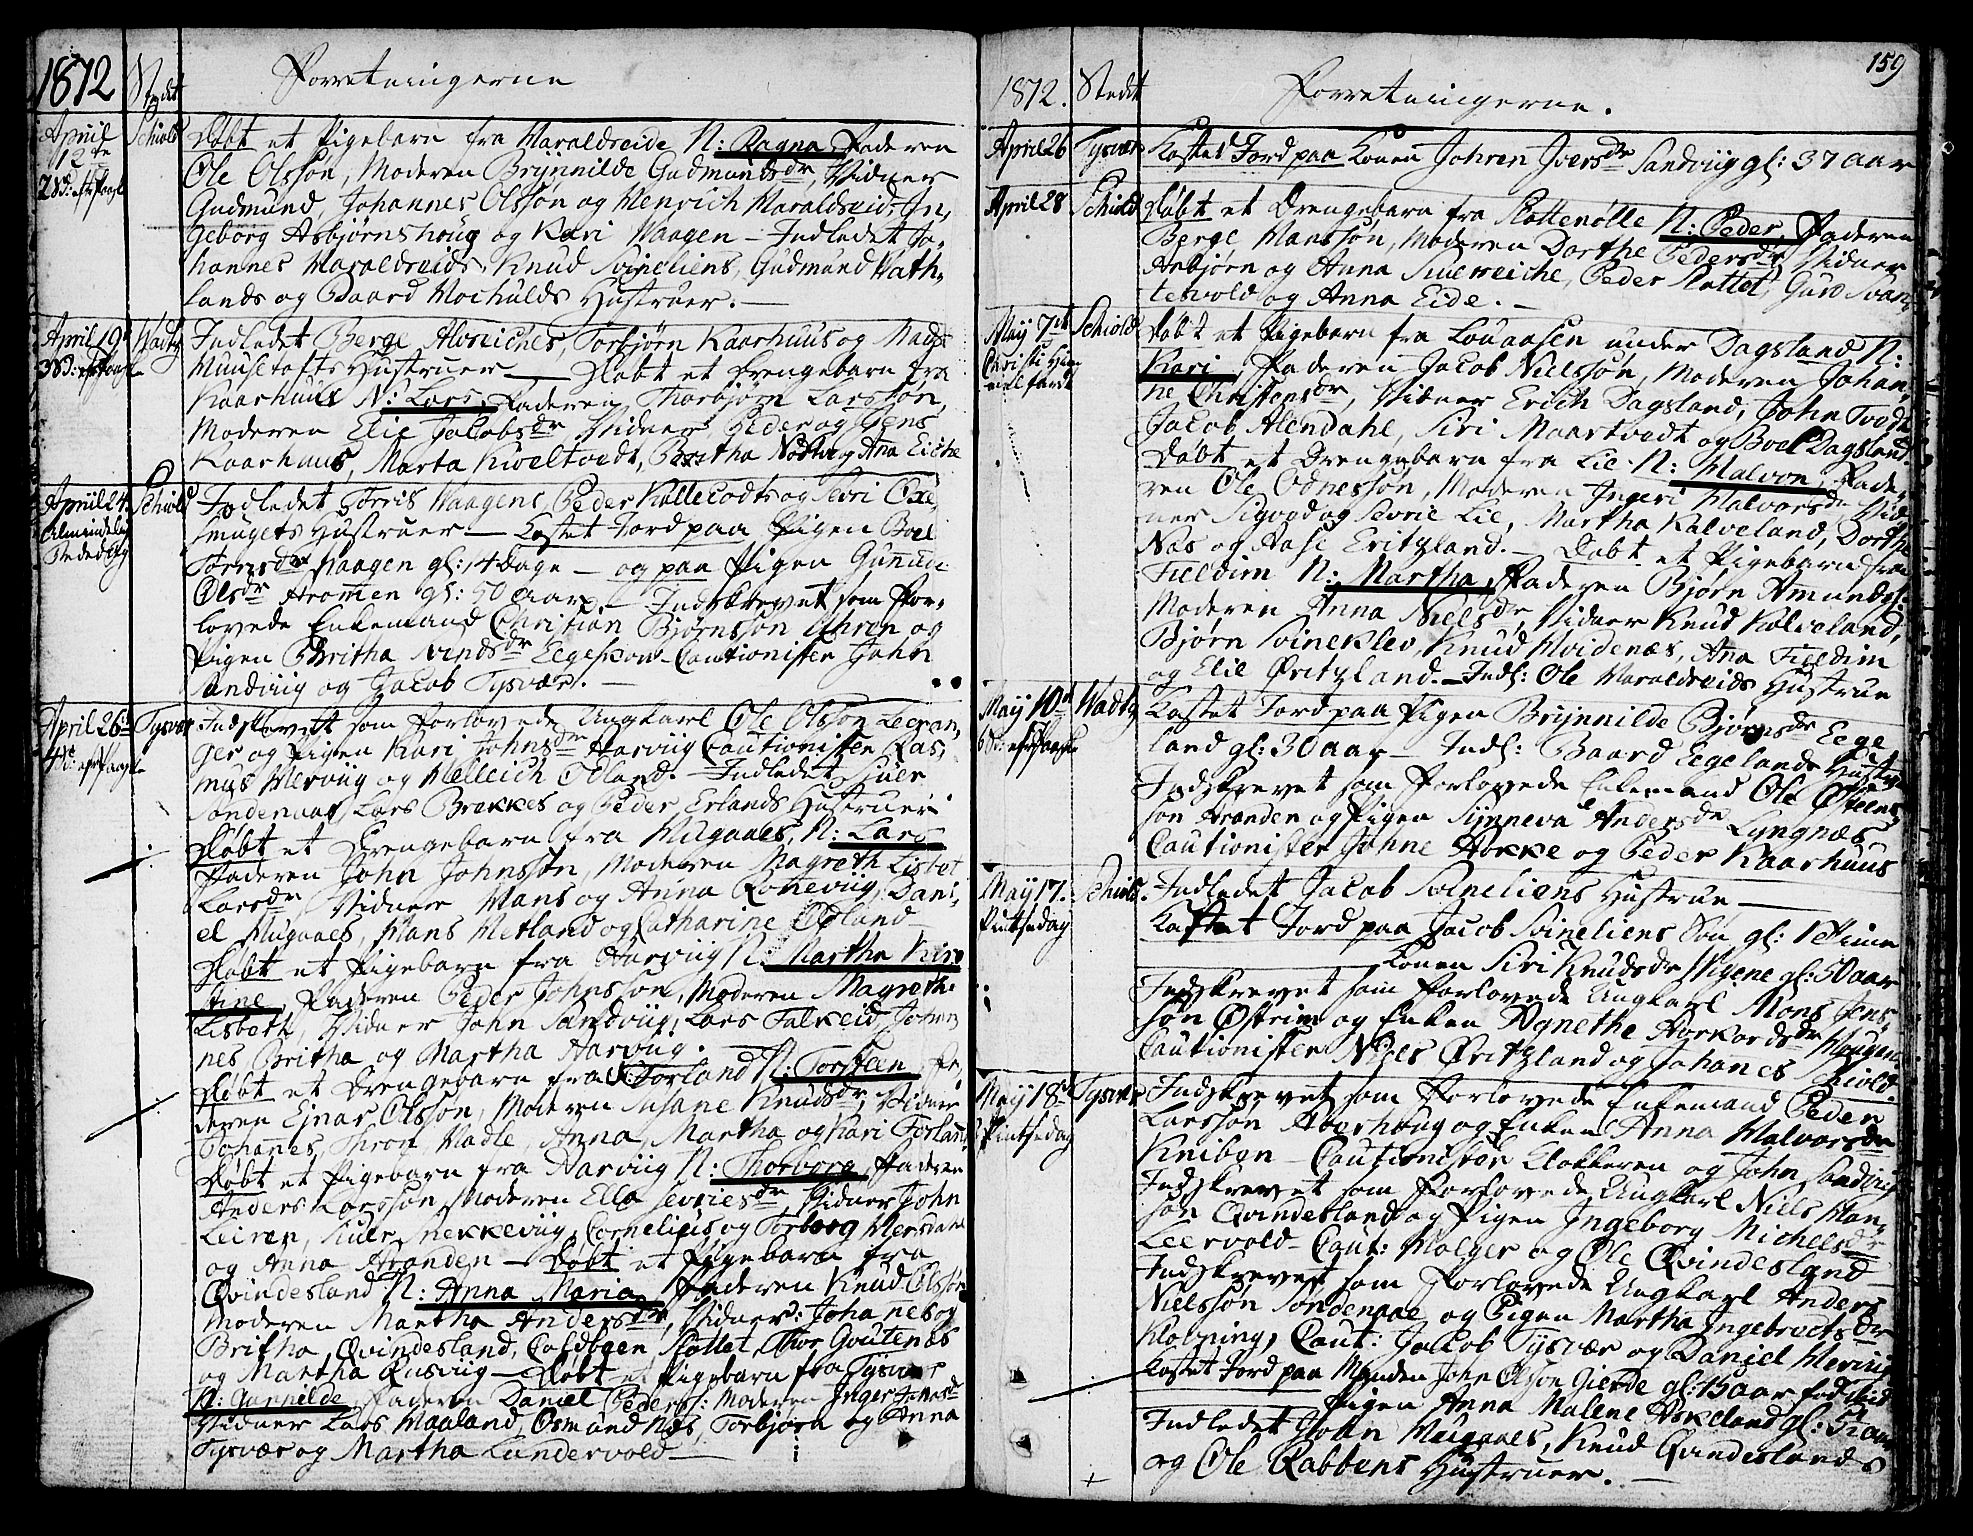 1812 Stedet Forretningerne
April 12te 2 S: eft. Paaske Schiold Døbt et Pigebarn fra Haraldseide N: Ragna, Faderen
Ole Olssøn, Moderen Brynnilde Gudmundsdr, Vidner
Gudmund, Johannes Olssøn og Henrich Haraldseid, In-
geborg Asbjørnshoug og Kari Waagen – Indledet Jo-
hannes Haraldseids, Knud Svineliens, Gudmund Vath-
lands og Baard Mochulds Hustruer. –
April 19de 3 S: eft. Paaske Indledet Berge Alvseiches, Torbjørn Kaarhuus og Mads
Muusetofts Hustruer – Døbt et Drengebarn fra
Kaarhuus N: Lars, Faderen Thorbjørn Larssøn,
Moderen Elie Jacobsdr Vidner, Peder og Jens
Kaarhuus, Marta Kveltvedt, Britha og Ana Eiche
April 24. Almindelig Bededag Schiold Indledet Torris Waagens, Peder og Sevri Oxe-
smugets Hustruer – Kastet Jord paa Pigen Boel
Torrisdr Waagen gl: 14 dage – og paa Pigen
Olsdr Aronnen gl: 50 aar – Indskrevet som For-
lovede Enkemand Christian Bjørnssøn og
Pigen Britha Egeskow – Cautionister John
Sandviig og Jacob Tysvær. –
April 26de 4de S: eft. Paaske Tysvær Indskrevet som Forlovede Ungkarl Ole Olssøn Leeran-
ger og Pigen Kari Johnsdr Aarviig Cautionister Ras-
mus Herviig og Helleich Odland. – Indledet Siuer
Søndenaaes, Lars Brekkes og Peder Erlands Hustruer
Døbt et Drengebarn fra Hugaaes, N: Lars
Faderen John Johnssøn, Moderen Magreth Lisbet
Larsdr Vidner Hans og Anna Roneviig, Dani-
el Hugaaes, Hans Hetland og Catharine Odland
Døbt et Pigebarn fra Aarviig N: Martha Kir-
stine, Faderen Peder Johnssøn, Moderen Magrethe
Lisbeth, Vidner John Sandviig, Lars Falkeid, Johan-
nes, Britha og Martha Aarviig. –
Døbt et Drengebarn fra Førland N: Torsteen, Fa-
deren Ejnar Olssøn, Moderen Susane Knudsdr, Vidner
Johannes, Thron Nadle, Anna, Martha og Kari Førland
Døbt et Pigebarn fra Aarviig N: Thorborg, Faderen
Anders Larssøn, Moderen Ella Sevriesdr, Vidner John
Leiren, Siuer Snekkeviig, Cornelius og Torborg Mersdahl
og Anna Aranden – Døbt et Pigebarn fra
Qvindesland N: Anna Maria, Faderen Knud Olssøn
Moderen Martha Andersdr, Vidner: Johannes og
Britha Qvindesland, Slottet, Thor Goutenæs
og Martha Rusviig – Døbt et Pigebarn fra Tysvær
N: Gunnilde, Faderen Daniel Peders: Moderen Inger
Vidner Lars Maaland, Osmund Næs, Torbjørn og Anna
Tysvær og Martha Lundervold –
159
1812. Stedet Forretningerne.
April 26 Tysvær Kastet Jord paa Konen Johren Iversdr Sandviig gl: 37 aar
April 28 Schiold Døbt et Drengebarn fra Slottenølle N: Peder, Faderen
Berge Hanssøn, Moderen Dorthe Pedersdr Vidner
Asbjørn og Anna Siuerseiche, Peder Slottet, Guro Svan-
tesvold og Anna Eide. –
Maij 7de Christi Himmelfardt Schiold Døbt et Pigebarn fra Louaasen under Dagsland N:
Kari, Faderen Jacob Nielssøn, Moderen Johan-
ne Christensdr, Vidner Erich Dagsland, John Tvedt
Jacob Alendahl, Siri Maartvedt og Boel Dagsland.
Døbt et Drengebarn fra Lie N: Halvor, Fade-
ren Ole Odnessøn, Moderen Ingeri Halvorsdr Vid-
ner Sigvod og Sevrie Lie, Martha Kalveland, Dorthe
Næs og Aase Eritzland. – Døbt et Pigebarn fra
Fieldim N: Martha, Faderen Bjørn Amunds:
Moderen Anna Nielsdr, Vidner Knud Kalveland,
Bjørn Svineklev, Knud Hvidenæs, Ana Fieldim
og Elie Øritzland. – Indl: Ole Haraldseids Hustrue
Maij 10de 6 S: eft. Paaske Kastet Jord paa Pigen Brynnilde Bjørnsdr Eege
land gl: 30 aar – Indl: Baard Eegelands Hustrue
Indskrevet som Forlovede Enkemand Ole Østens-
søn Aranden og Pigen Synneva Andersdr Lyngnæs
Cautionister Johne Hokke og Peder Kaarhuus
Maij 17. Pintsedag Schiold. Indledet Jacob Svineliens Hustrue –
Kastet Jord paa Jacob Svineliens Søn gl: 1 Time
Konen Siri Knudsdr Stigene gl: 50 aar
Indskrevet som Forlovede Ungkarl Mons Jens-
søn Østrim og Enken Agnethe Haugen
Cautionister Niels Øritzland og Johanes Schiold.
Maij 18de Pintsedag Tysvær Indskrevet som Forlovede Enkemand Peder
Larssøn Averhoug og Enken Anna Halvorsdr
Kniben – Cautionister Klokkeren og John Sandviig
Indskrevet som Forlovede Ungkarl Niels Han-
søn Qvindesland og Pigen Ingeborg Michelsdr
Leervold – Caut: Holger og Ole Qvindesland
Indskrevet som Forlovede Ungkarl Anders
Nielssøn Søndenaae og Pigen Martha Ingebretsdr
Kløvning, Caut: Jacob Tysvær og Daniel Herviig
Kastet Jord paa Manden John Olsøn Gierde gl:
Pigen Anna Malene Askeland gl:
Indledet John Hugaaes, Knud Qvindeslands
og Ole Rabbens Hustruer. –